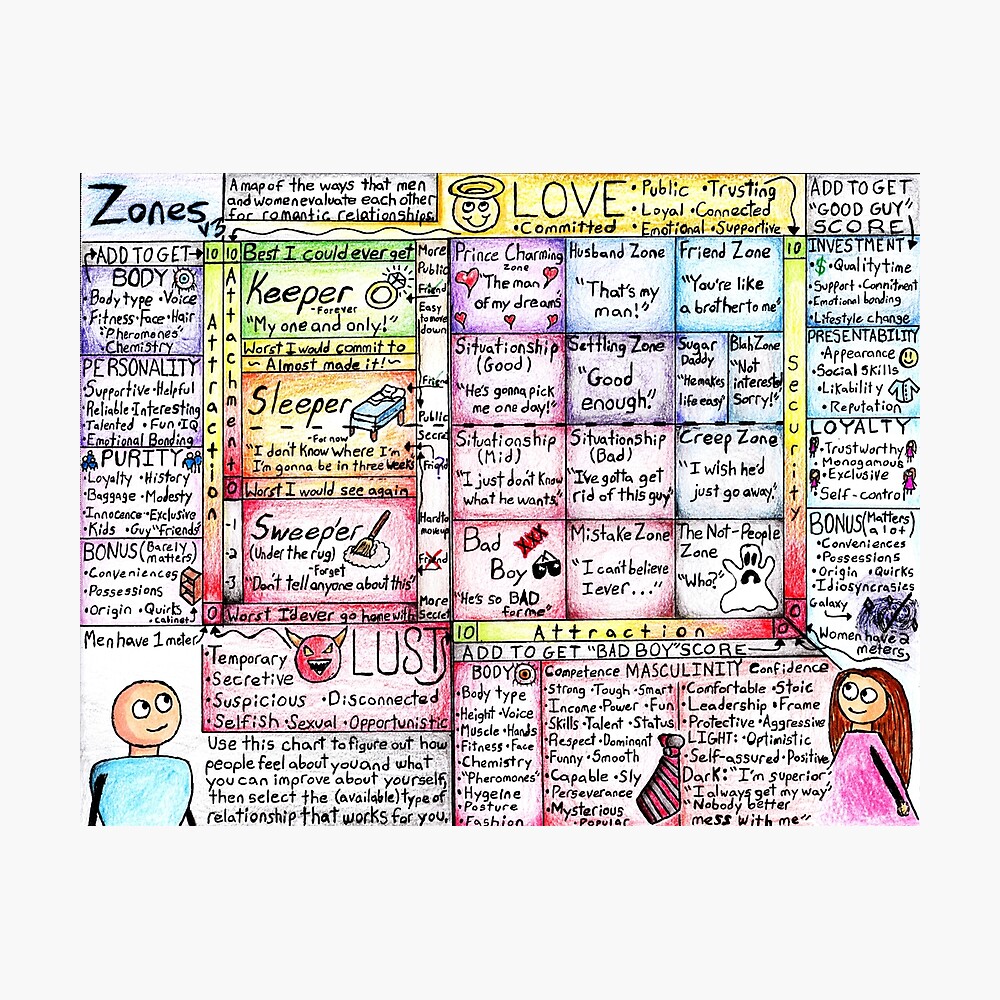 Zones
v3
A map of the ways that men
and women evaluate each other
for romantic relationships.
LOVE
• Public • Trusting
• Loyal • Connected
• Committed • Emotional • Supportive
ADD TO GET
"GOOD GUY"
SCORE
ADD TO GET
BODY
• Body type • Voice
• Fitness • Face • Hair
"Pheromones"
Chemistry
PERSONALITY
• Supportive • Helpful
• Reliable • Interesting
• Talented • Fun • IQ
• Emotional Bonding
PURITY
• Loyalty • History
• Baggage • Modesty
Innocence • Exclusive
• Kids • Guy "Friends"
BONUS (Barely
matters)
• Conveniences
• Possessions
• Origin • Quirks
• cabinet
Men have 1 meter
10
Attraction
0
10
Attachment
0
-1
-2
-3
Best I could ever get
Keeper
-Forever
"My one and only!"
Worst I would commit to
~ Almost made it! ~
Sleeper
-For now
"I don't know where I'm
I'm gonna be in three weeks
Worst I would see again
Sweeper
(Under the rug)
-Forget
"Don't tell anyone about this"
Worst I'd ever go home with
More
Public
Friend
Easy
to move
down
Friend
Public
Secret
Friend
?
Hard to
move up
Friend
More
Secret
Prince Charming
zone
"The man
of my dreams"
Husband Zone
"That's my
man!"
Friend Zone
"You're like
a brother to me"
Situationship
(Good)
"He's gonna pick
me one day!"
Settling Zone
"Good
enough."
Sugar
Daddy
"He makes
life easy"
Blah Zone
"Not
interested
Sorry!"
Situationship
(Mid)
"I just don't know
what he wants."
Situationship
(Bad)
"I've gotta get
rid of this guy"
Creep Zone
"I wish he'd
just go away."
Bad
Boy
XXX
"He's so BAD
for me"
Mistake Zone
"I can't believe
I ever..."
The Not-People
Zone
"Who?"
10
Security
0
10
Attraction
0
INVESTMENT
• $ • Quality time
• Support • Commitment
• Emotional bonding
• Lifestyle change
PRESENTABILITY
• Appearance
• Social skills
• Likability
• Reputation
LOYALTY
• Trustworthy
• Monogamous
• Exclusive
• Self-control
BONUS (Matters
a lot)
• Conveniences
• Possessions
• Origin • Quirks
• Idiosyncrasies
Galaxy
Women have 2
meters
LUST
Temporary
• Secretive
• Suspicious • Disconnected
• Selfish • Sexual • Opportunistic
Use this chart to figure out how
people feel about you and what
you can improve about yourself,
then select the (available) type of
relationship that works for you.
ADD TO GET "BAD BOY" SCORE
BODY
• Body type
• Height • Voice
• Muscle • Hands
• Fitness • Face
• Chemistry
• "Pheromones"
• Hygeine
Posture
• Fashion
Competence MASCULINITY Confidence
• Strong • Tough • Smart
• Income • Power • Fun
Skills • Talent • Status
• Respect • Dominant
• Funny • Smooth
• Capable • Sly
• Perseverance
• Mysterious
• Popular
• Comfortable • Stoic
• Leadership • Frame
• Protective • Aggressive
LIGHT: • Optimistic
• Self-assured • Positive
Dark: "I'm superior"
"I always get my way"
"Nobody better
mess with me"